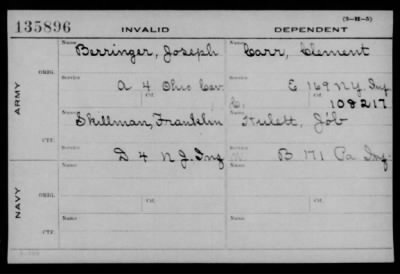 (3-M-5)
135896
INVALID
DEPENDENT
Name
Berringer, Joseph
Name
Carr, Clement
ARMY
ORIG.
Service
A 4 Ohio Cav.
Ctf.
Service
E 169 N.Y. Inf
Ctf.
108217
CTF.
Name
Skillman, Franklin
Name
Job
Service
D 4 N J. Inf
Service
B 171 Pa Inf.
NAVY
ORIG.
Name
Ctf.
Name
Ctf.
CTF.
Name
Name